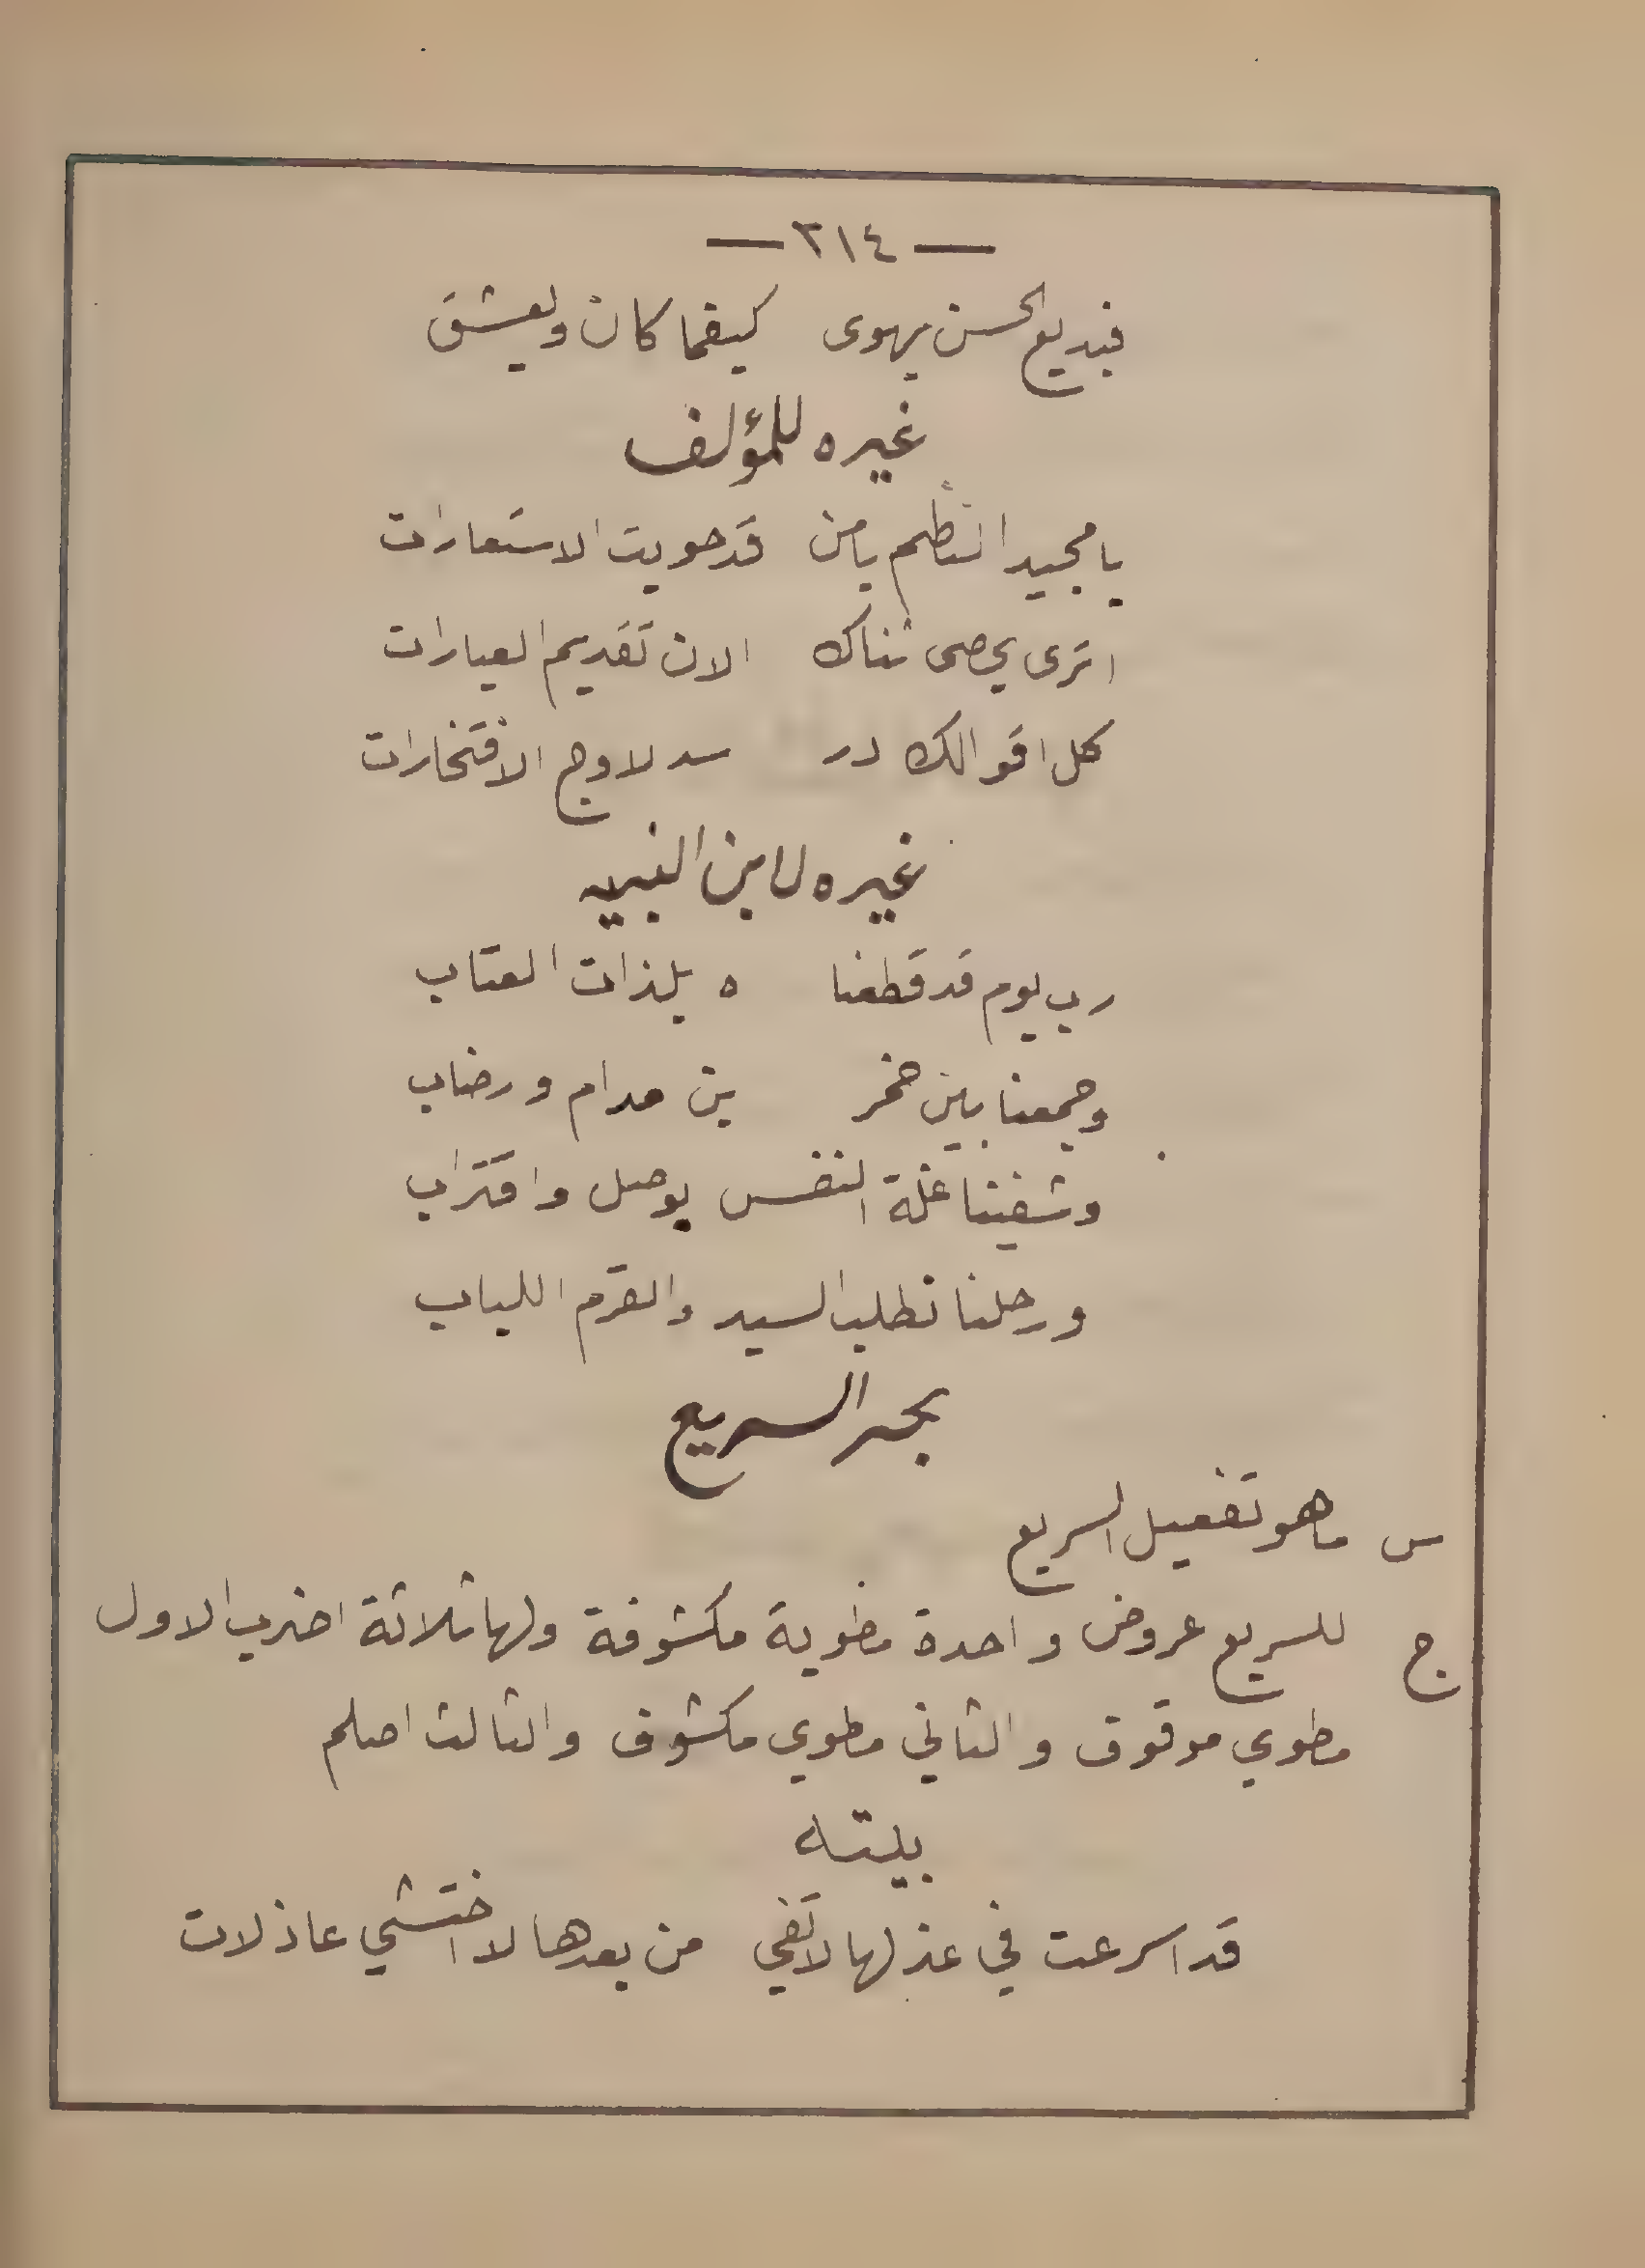 — ٢١٤ —
فبديع الحسن يهوى كيفما كان ويعشق
غيره للمؤلف
يا مجيد النظم يامن قد حويت الاستعارات
اترى يحصى ثناك الان تقديم العبارات
كل اقوالك در سد لاوج الافتخارات
غيره لابن النبيه
رب يوم قد قطعنا ه بلذات العتاب
وجمعنا بين خمر ين مدام ورضاب
وشفينا غلة النفس بوصل واقتراب
ورحلنا نطلب السيد والقرم اللباب
بحر السريع
س ما هو تفعيل السريع
ج للسريع عروض واحدة مطوية مكشوفة ولها ثلاثة اضرب الاول
مطوي موقوف والثاني مطوي مكشوف والثالث اصلم
بيته
قد اسرعت في عذلها لا تفي من بعدها لا اختشي عاذلات